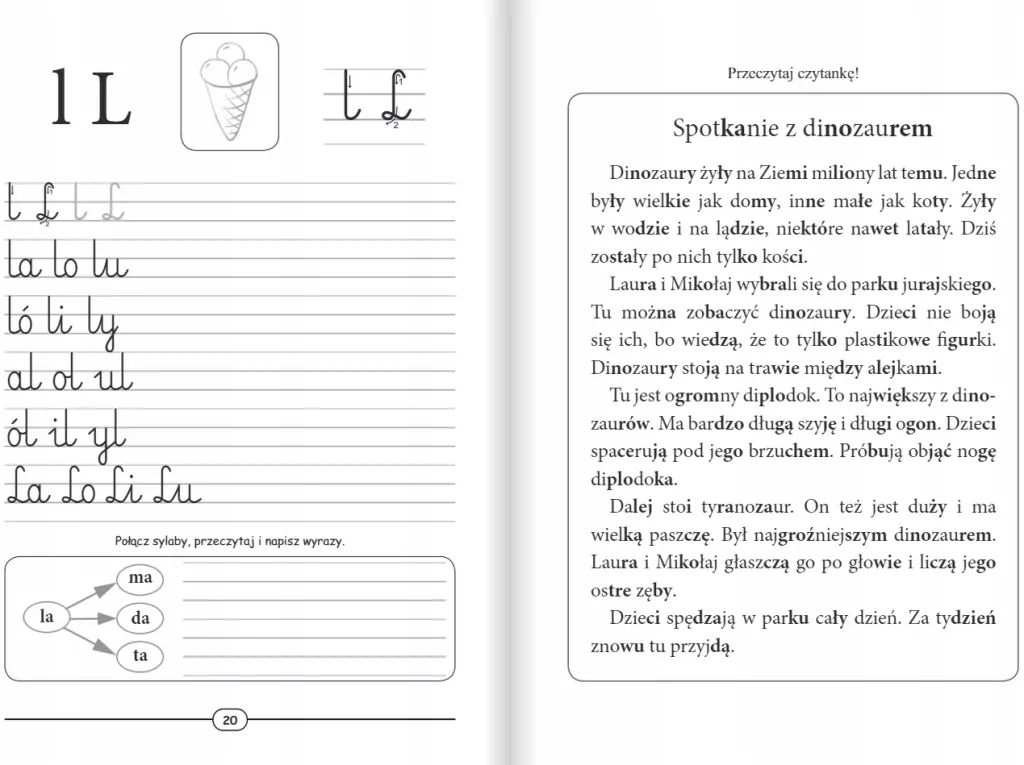 l L
l L
1
2
l L l L
1
2
la lo lu
ló li ly
al ol ul
ól il yl
La Lo Li Lu
Połącz sylaby, przeczytaj i napisz wyrazy.
ma
la
da
ta
20
Przeczytaj czytankę!
Spotkanie z dinozaurem
Dinozaury żyły na Ziemi miliony lat temu. Jedne
były wielkie jak domy, inne małe jak koty. Żyły
w wodzie i na lądzie, niektóre nawet latały. Dziś
zostały po nich tylko kości.
Laura i Mikołaj wybrali się do parku jurajskiego.
Tu można zobaczyć dinozaury. Dzieci nie boją
się ich, bo wiedzą, że to tylko plastikowe figurki.
Dinozaury stoją na trawie między alejkami.
Tu jest ogromny diplodok. To największy z dino-
zaurów. Ma bardzo długą szyję i długi ogon. Dzieci
spacerują pod jego brzuchem. Próbują objąć nogę
diplodoka.
Dalej stoi tyranozaur. On też jest duży i ma
wielką paszczę. Był najgroźniejszym dinozaurem.
Laura i Mikołaj głaszczą go po głowie i liczą jego
ostre zęby.
Dzieci spędzają w parku cały dzień. Za tydzień
znowu tu przyjdą.